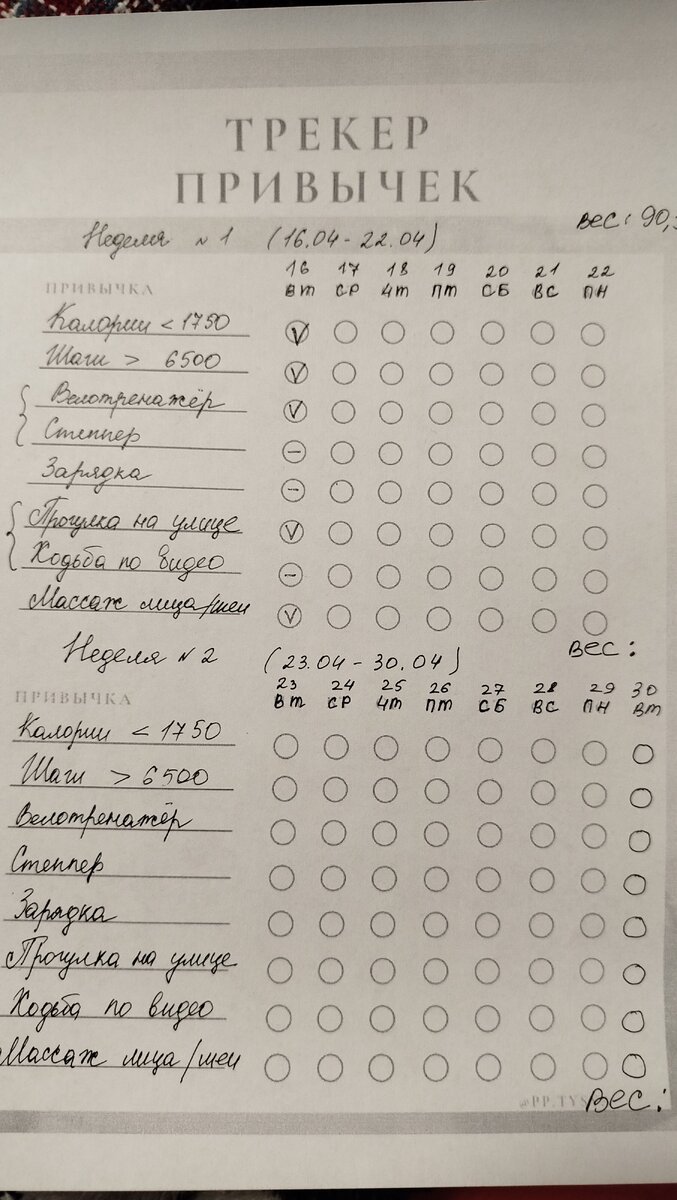 ТРЕКЕР
ПРИВЫЧЕК
Вес: 90,
Неделя №1 (16.04 - 22.04)
16 17 18 19 20 21 22
ПРИВЫЧКА ВТ СР ЧТ ПТ СБ ВС ПН
Калории < 1750
Шаги > 6500
Велотренажёр
Степпер
Зарядка
Прогулка на улице
Ходьба по видео
Массаж лица/шеи
Неделя №2 (23.04 - 30.04) Вес:
23 24 25 26 27 28 29 30
ПРИВЫЧКА ВТ СР ЧТ ПТ СБ ВС ПН ВТ
Калории < 1750
Шаги > 6500
Велотренажёр
Степпер
Зарядка
Прогулка на улице
Ходьба по видео
Массаж лица/шеи
@PP.TYS Вес: